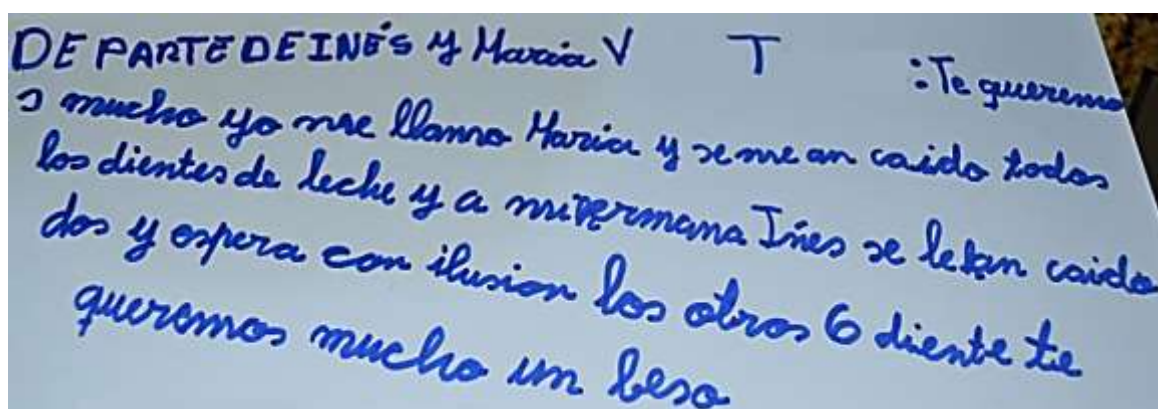 DE PARTE DE INÉS y Maria V T :Te queremo
s mucho yo me llamo Maria y se me an caido todos
los dientes de leche y a mi ermana Ines se le han caido
dos y espera con ilusion los otros 6 diente te
queremos mucho un beso